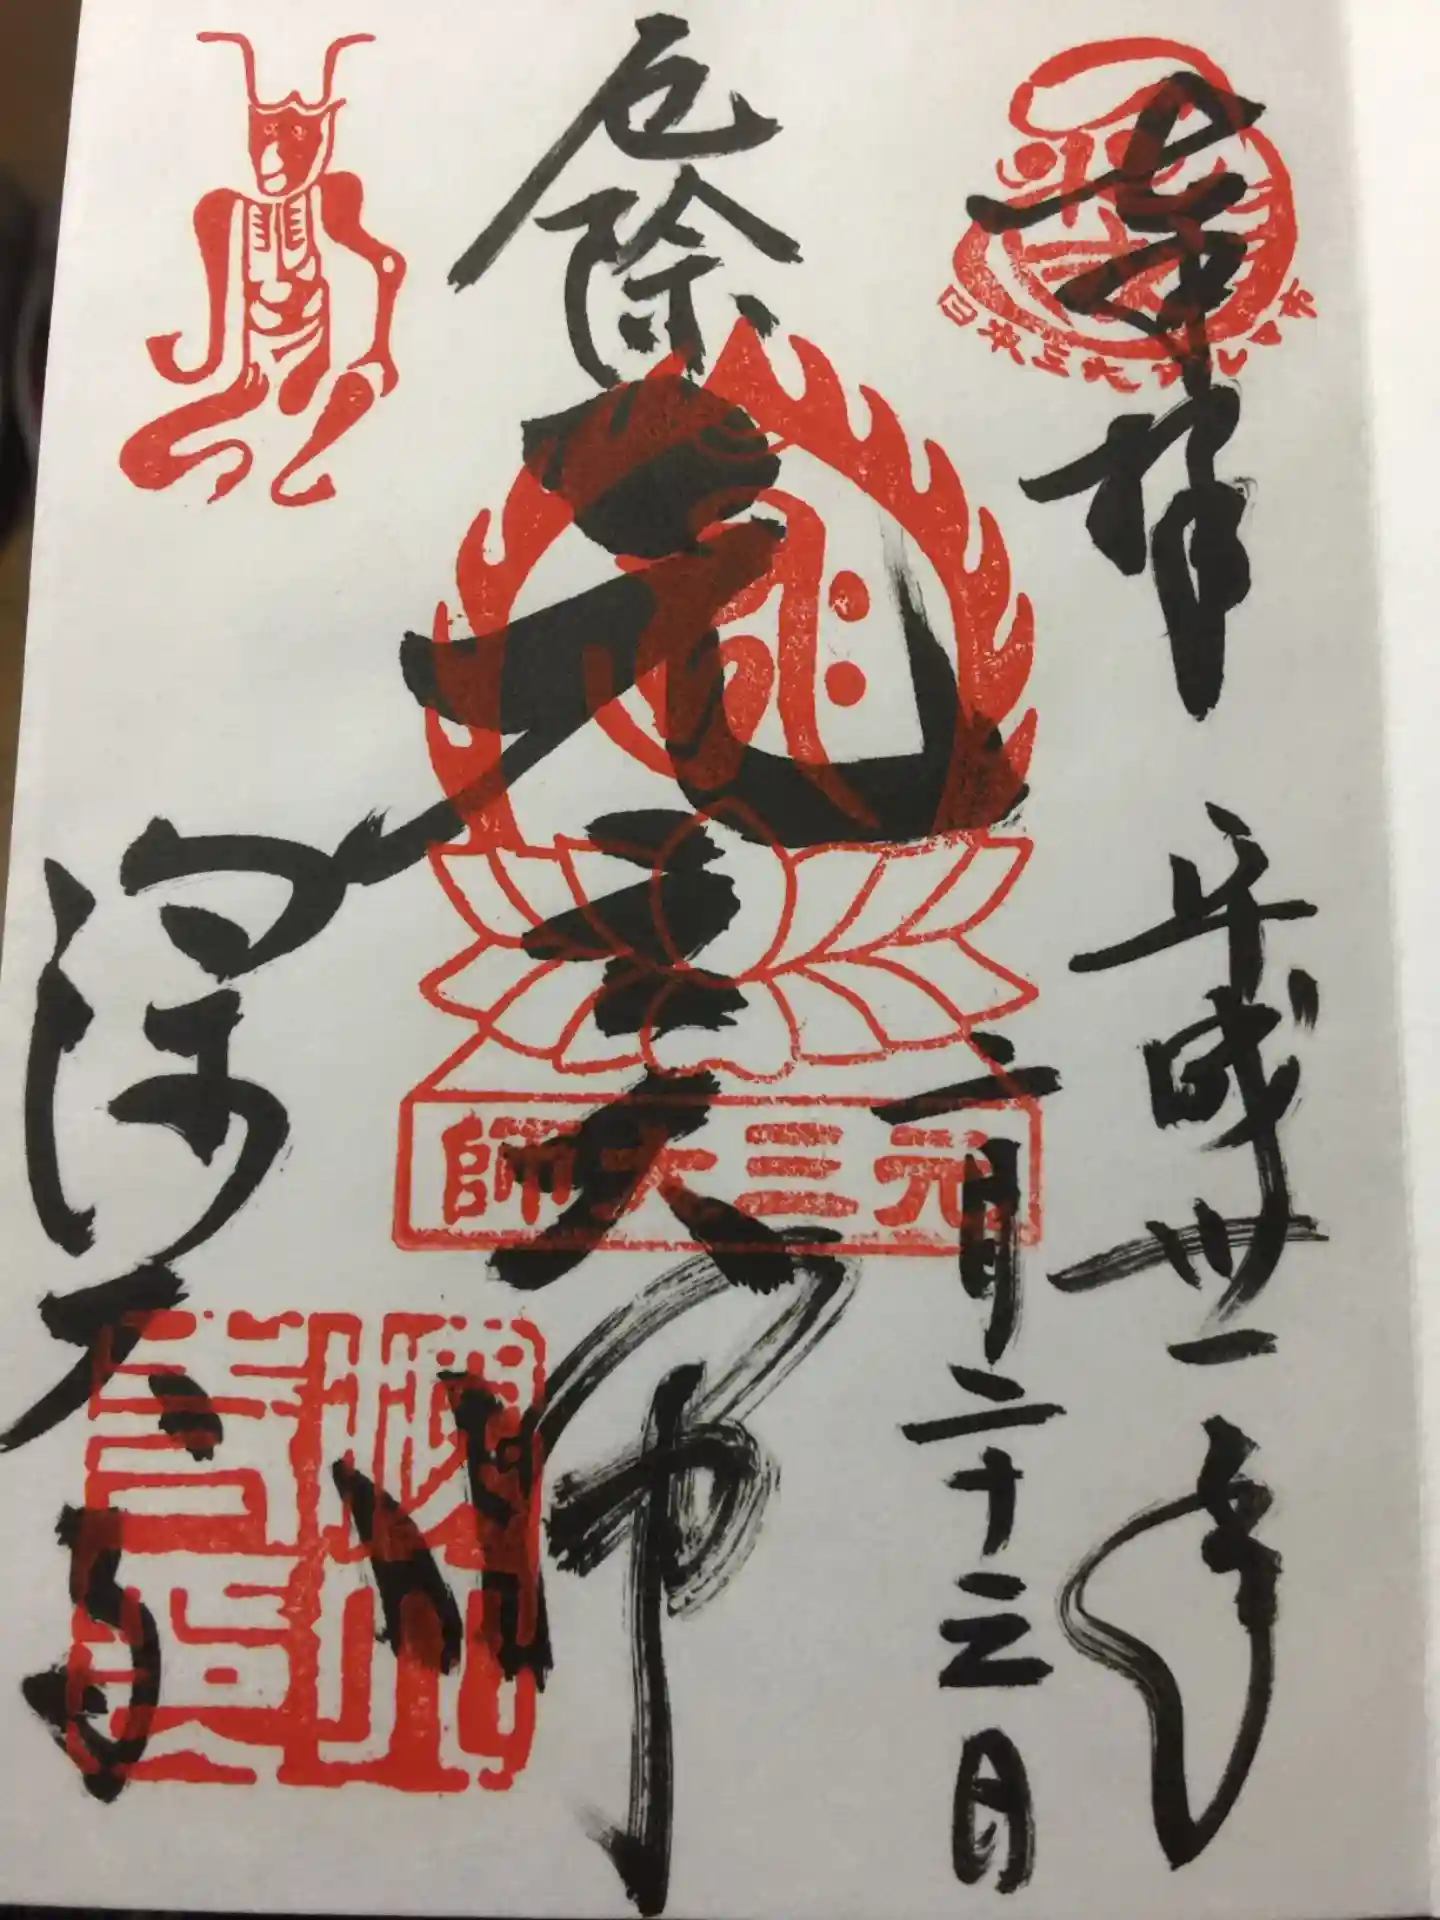 奉拝
日本三大だるま市
平成卅一年
二月二十三日
厄除
元三大師
元三大師
深大寺